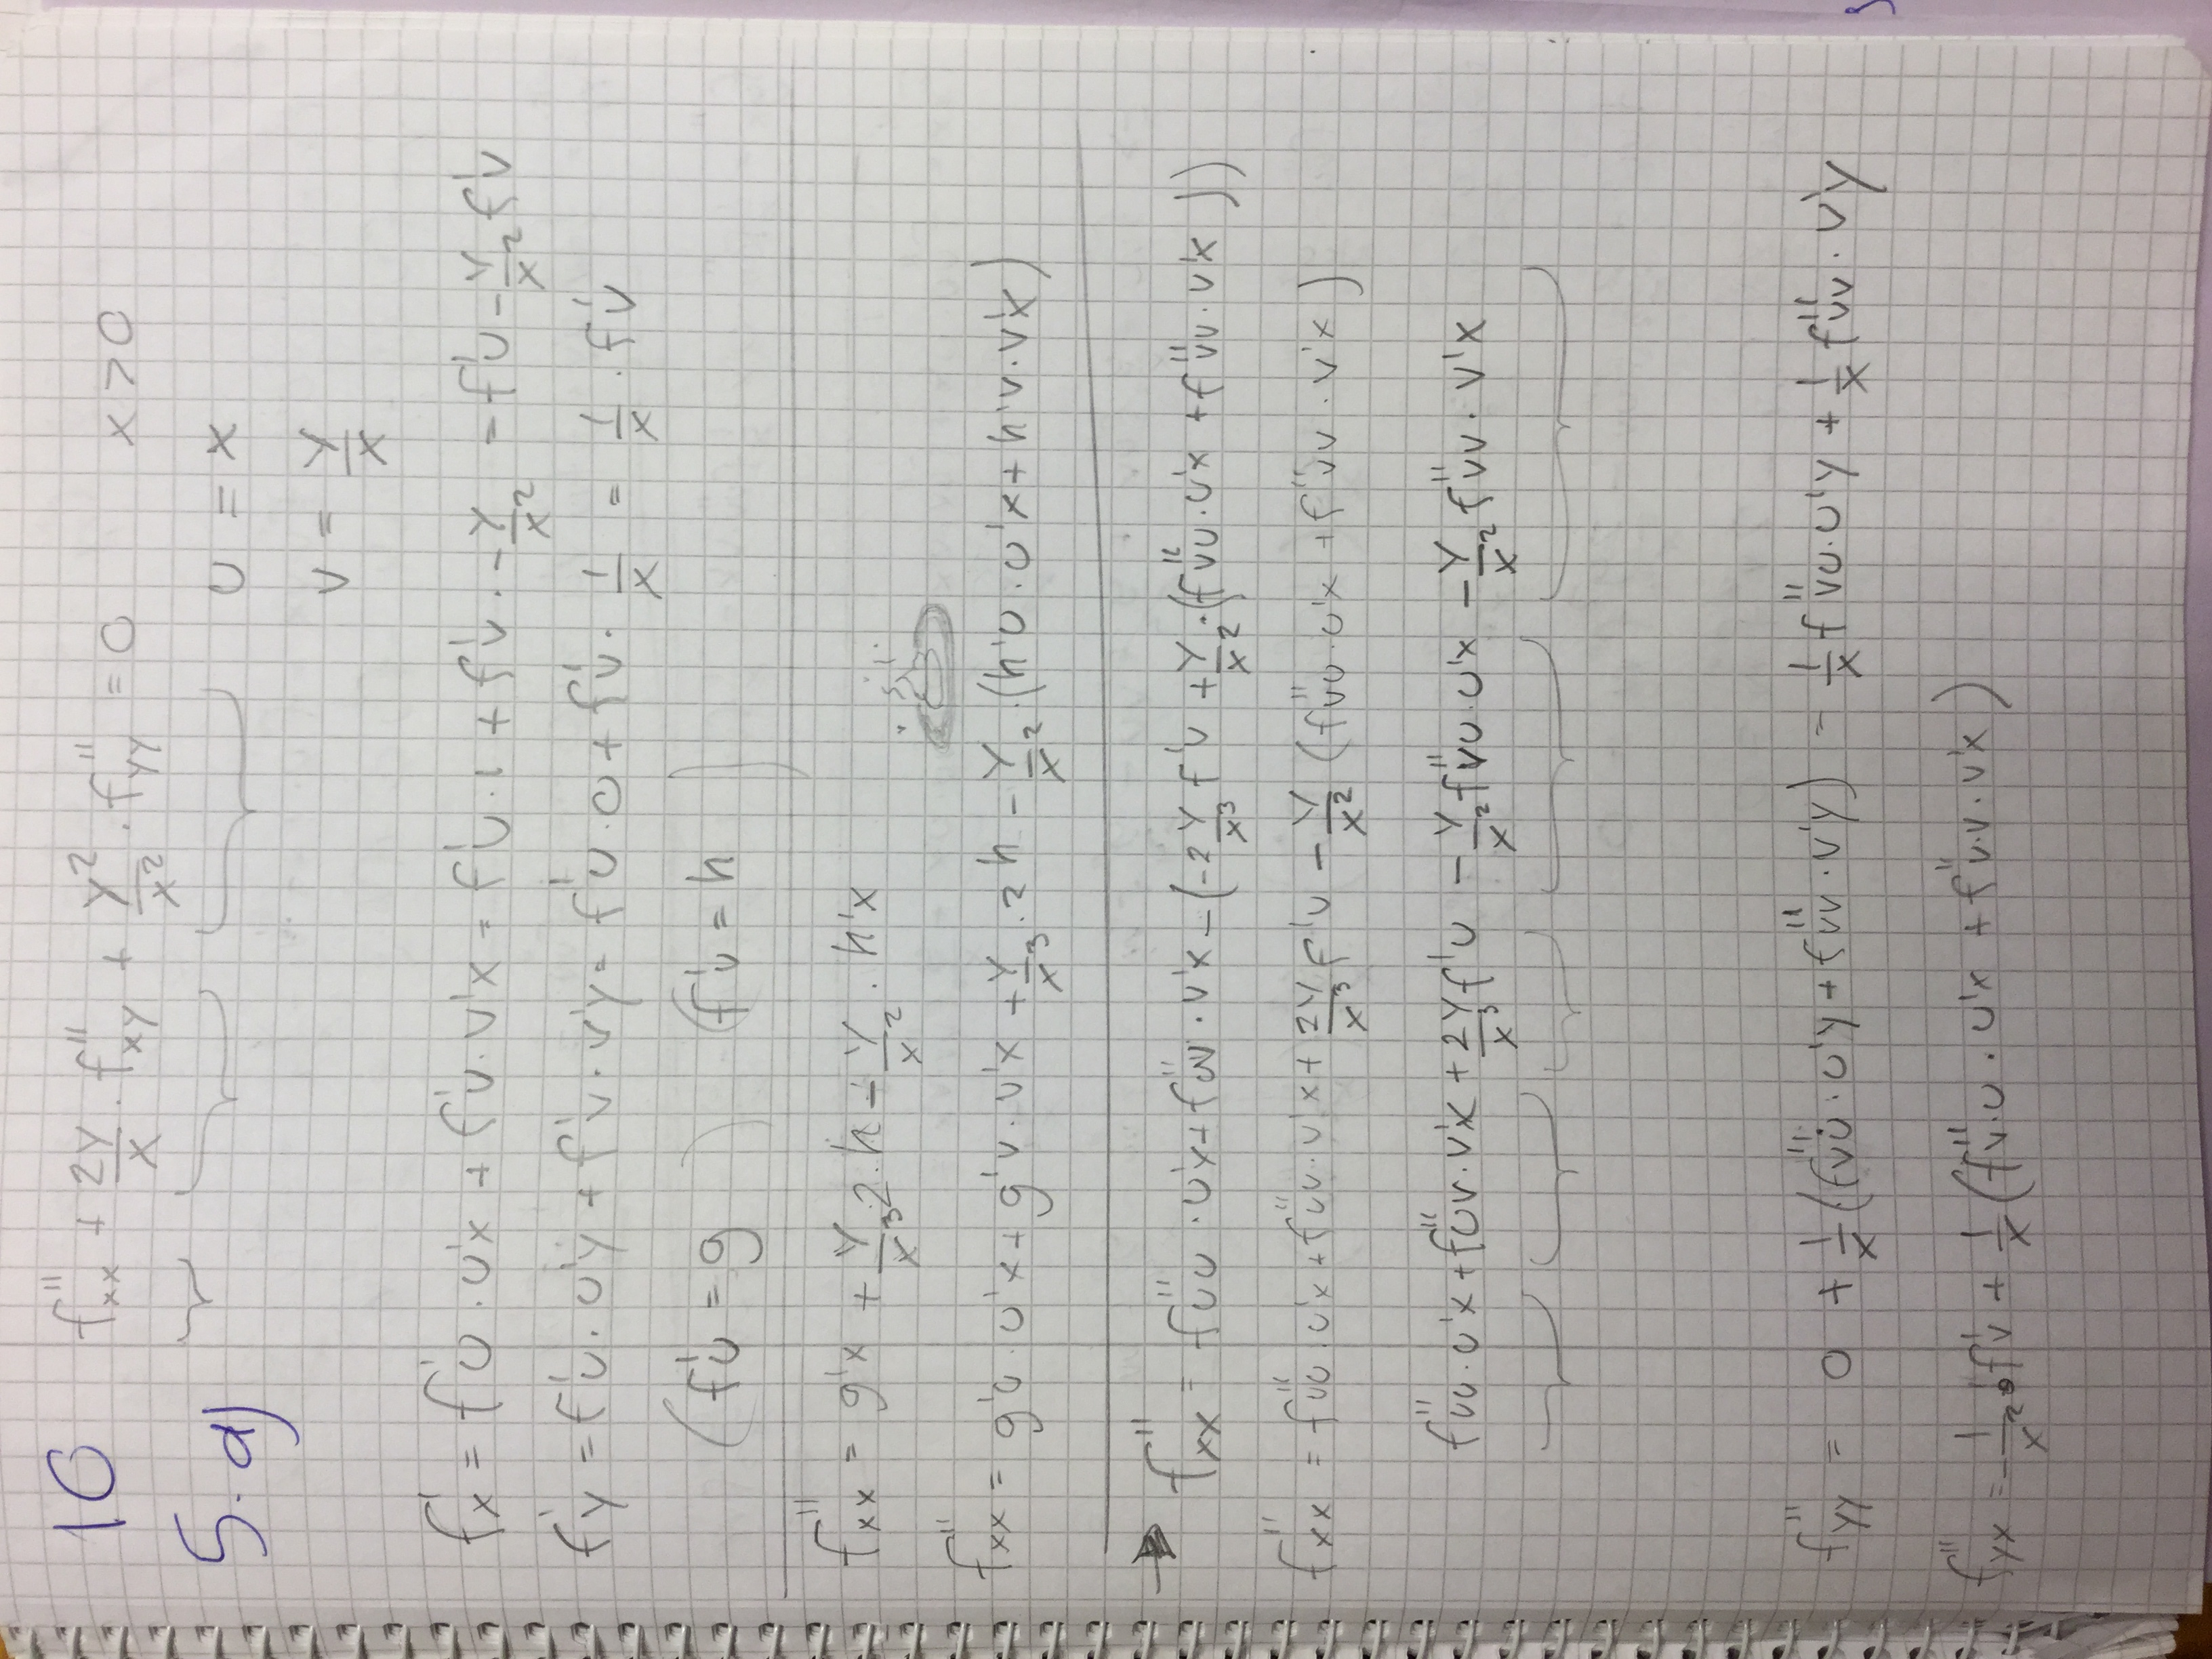 10 f''xx + 2y/x · f''xy + y²/x² · f''yy = 0 x > 0
5. a) u = x
v = y/x
f'x = f'u · u'x + f'v · v'x = f'u · 1 + f'v · -y/x² = f'u - y/x² f'v
f'y = f'u · u'y + f'v · v'y = f'u · 0 + f'v · 1/x = 1/x · f'v
(f'u = g) (f'v = h)
f''xx = g'x + y/x³ · 2 · h - y/x² · h'x
f''xx = g'u · u'x + g'v · v'x + y/x³ · 2h - y/x² · (h'u · u'x + h'v · v'x)
→ f''xx = f''uu · u'x + f''uv · v'x - (-2 y/x³ f'v + y/x² · (f''vu · u'x + f''vv · v'x))
f''xx = f''uu · u'x + f''uv · v'x + 2y/x³ f'v - y/x² (f''vu · u'x + f''vv · v'x)
f''uu · u'x + f''uv · v'x + 2y/x³ f'v - y/x² f''vu · u'x - y/x² f''vv · v'x
f''yy = 0 + 1/x · (f''vu · u'y + f''vv · v'y) = 1/x f''vu · u'y + 1/x f''vv · v'y
f''yx = -1/x² · f'v + 1/x (f''v·u · u'x + f''v·v · v'x)